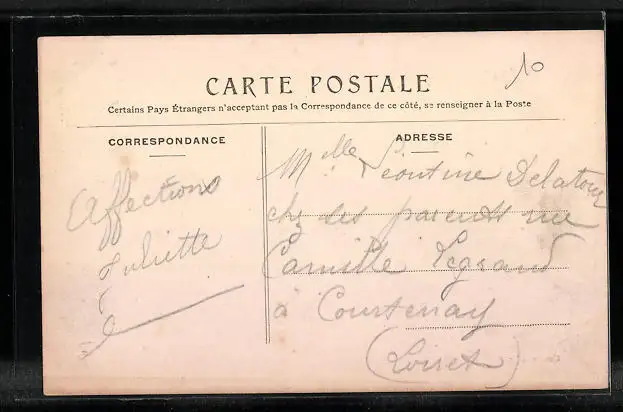 10
CARTE POSTALE
Certains Pays Étrangers n'acceptant pas la Correspondance de ce côté, se renseigner à la Poste
CORRESPONDANCE
ADRESSE
Affections
Juliette
Mlle Léontine Delatour
chez ses parents rue
Camille Legrand
à Courtenay
(Loiret)